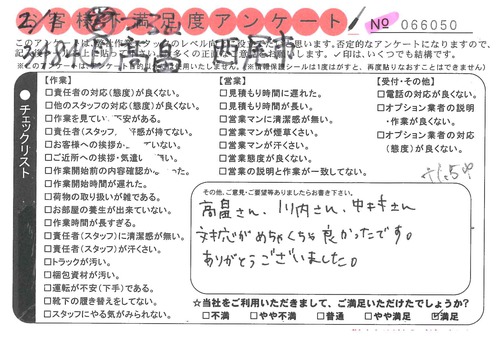 お客様不満足度アンケート
No 066050
チェックリスト
【作業】
□責任者の対応(態度)が良くない。
□他のスタッフの対応(態度)が良くない。
□作業を見てい 不安がある。
□責任者(スタッフ 感が持てない。
□お客様への挨拶か ていない。
□ご近所への挨拶・気遣 ていない。
□作業開始前の内容確認か った。
□作業開始時間が遅れた。
□荷物の取り扱いが雑である。
□お部屋の養生が出来ていない。
□作業時間が長すぎる。
□責任者(スタッフ)に清潔感が無い。
□責任者(スタッフ)が汗くさい。
□トラックが汚い。
□梱包資材が汚い。
□運転が不安(下手)である。
□靴下の履き替えをしてない。
□スタッフにやる気がみられない。
【営業】
□見積もり時間に遅れた。
□見積もり時間が長い。
□営業マンに清潔感が無い。
□営業マンが煙草くさい。
□営業マンが汗くさい。
□営業態度が良くない。
□営業の説明と作業が一致してない。
【受付・その他】
□電話の対応が良くない。
□オプション業者の説明
・作業が良くない。
□オプション業者の対応
(態度)が良くない。
その他、ご意見・ご要望等ありましたらお書き下さい。
高畠さん、川内さん、中本さん
対応がめちゃくちゃ良かったです。
ありがとうございました。
☆当社をご利用いただきまして、ご満足いただけたでしょうか?
□不満 □やや不満 □普通 □やや満足 ☑満足